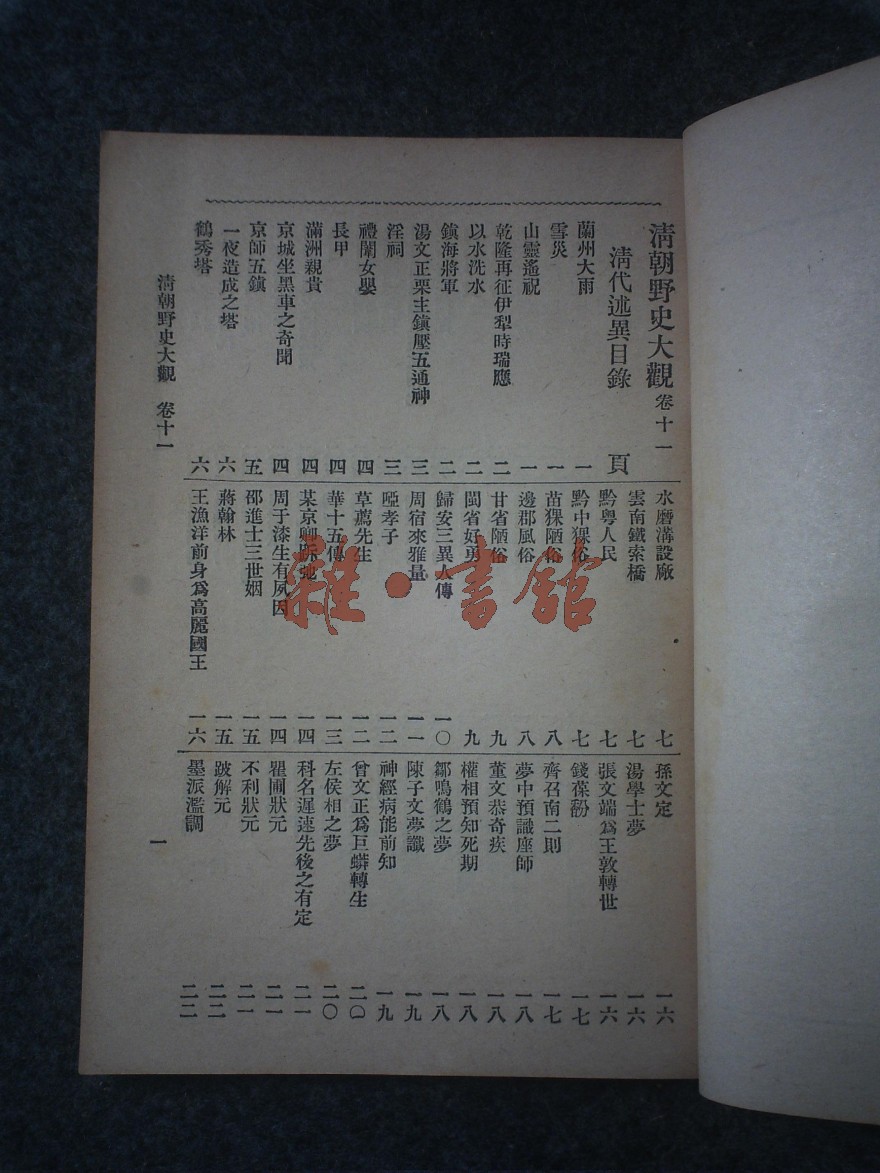 清朝野史大觀 卷十一
清代述異目錄 頁
蘭州大雨 一
雪災 一
山靈遙祝 一
乾隆再征伊犁時瑞應 二
以水洗水 二
鎮海將軍 二
湯文正栗主鎮壓五通神 三
淫祠 三
禮闈女嬰 四
長甲 四
滿洲親貴 四
京城坐黑車之奇聞 四
京師五鎮 五
一夜造成之塔 六
鶴秀塔 六
水磨溝設廠 七
雲南鐵索橋 七
黔粵人民 七
黔中猓俗 七
苗猓陋俗 八
邊郡風俗 八
甘省陋俗 九
閩省奸勇 九
歸安三異人傳 一〇
周宿來雅量 一一
啞孝子 一二
草薦先生 一二
華十五傳 一三
某京卿跅弛 一四
周于漆生有夙因 一四
邵進士三世姻 一五
蔣翰林 一五
王漁洋前身為高麗國王 一六
孫文定 一六
湯學士夢 一六
張文端為王敦轉世 一六
錢葆馚 一七
齊召南二則 一七
夢中預識座師 一八
董文恭奇疾 一八
權相預知死期 一八
鄒鳴鶴之夢 一八
陳子文夢讖 一九
神經病能前知 一九
曾文正為巨蟒轉生 二〇
左侯相之夢 二〇
科名遲速先後之有定 二一
瞿圃狀元 二一
不利狀元 二一
跛解元 二二
墨派濫調 二二
清朝野史大觀 卷十一
一
雜·書館